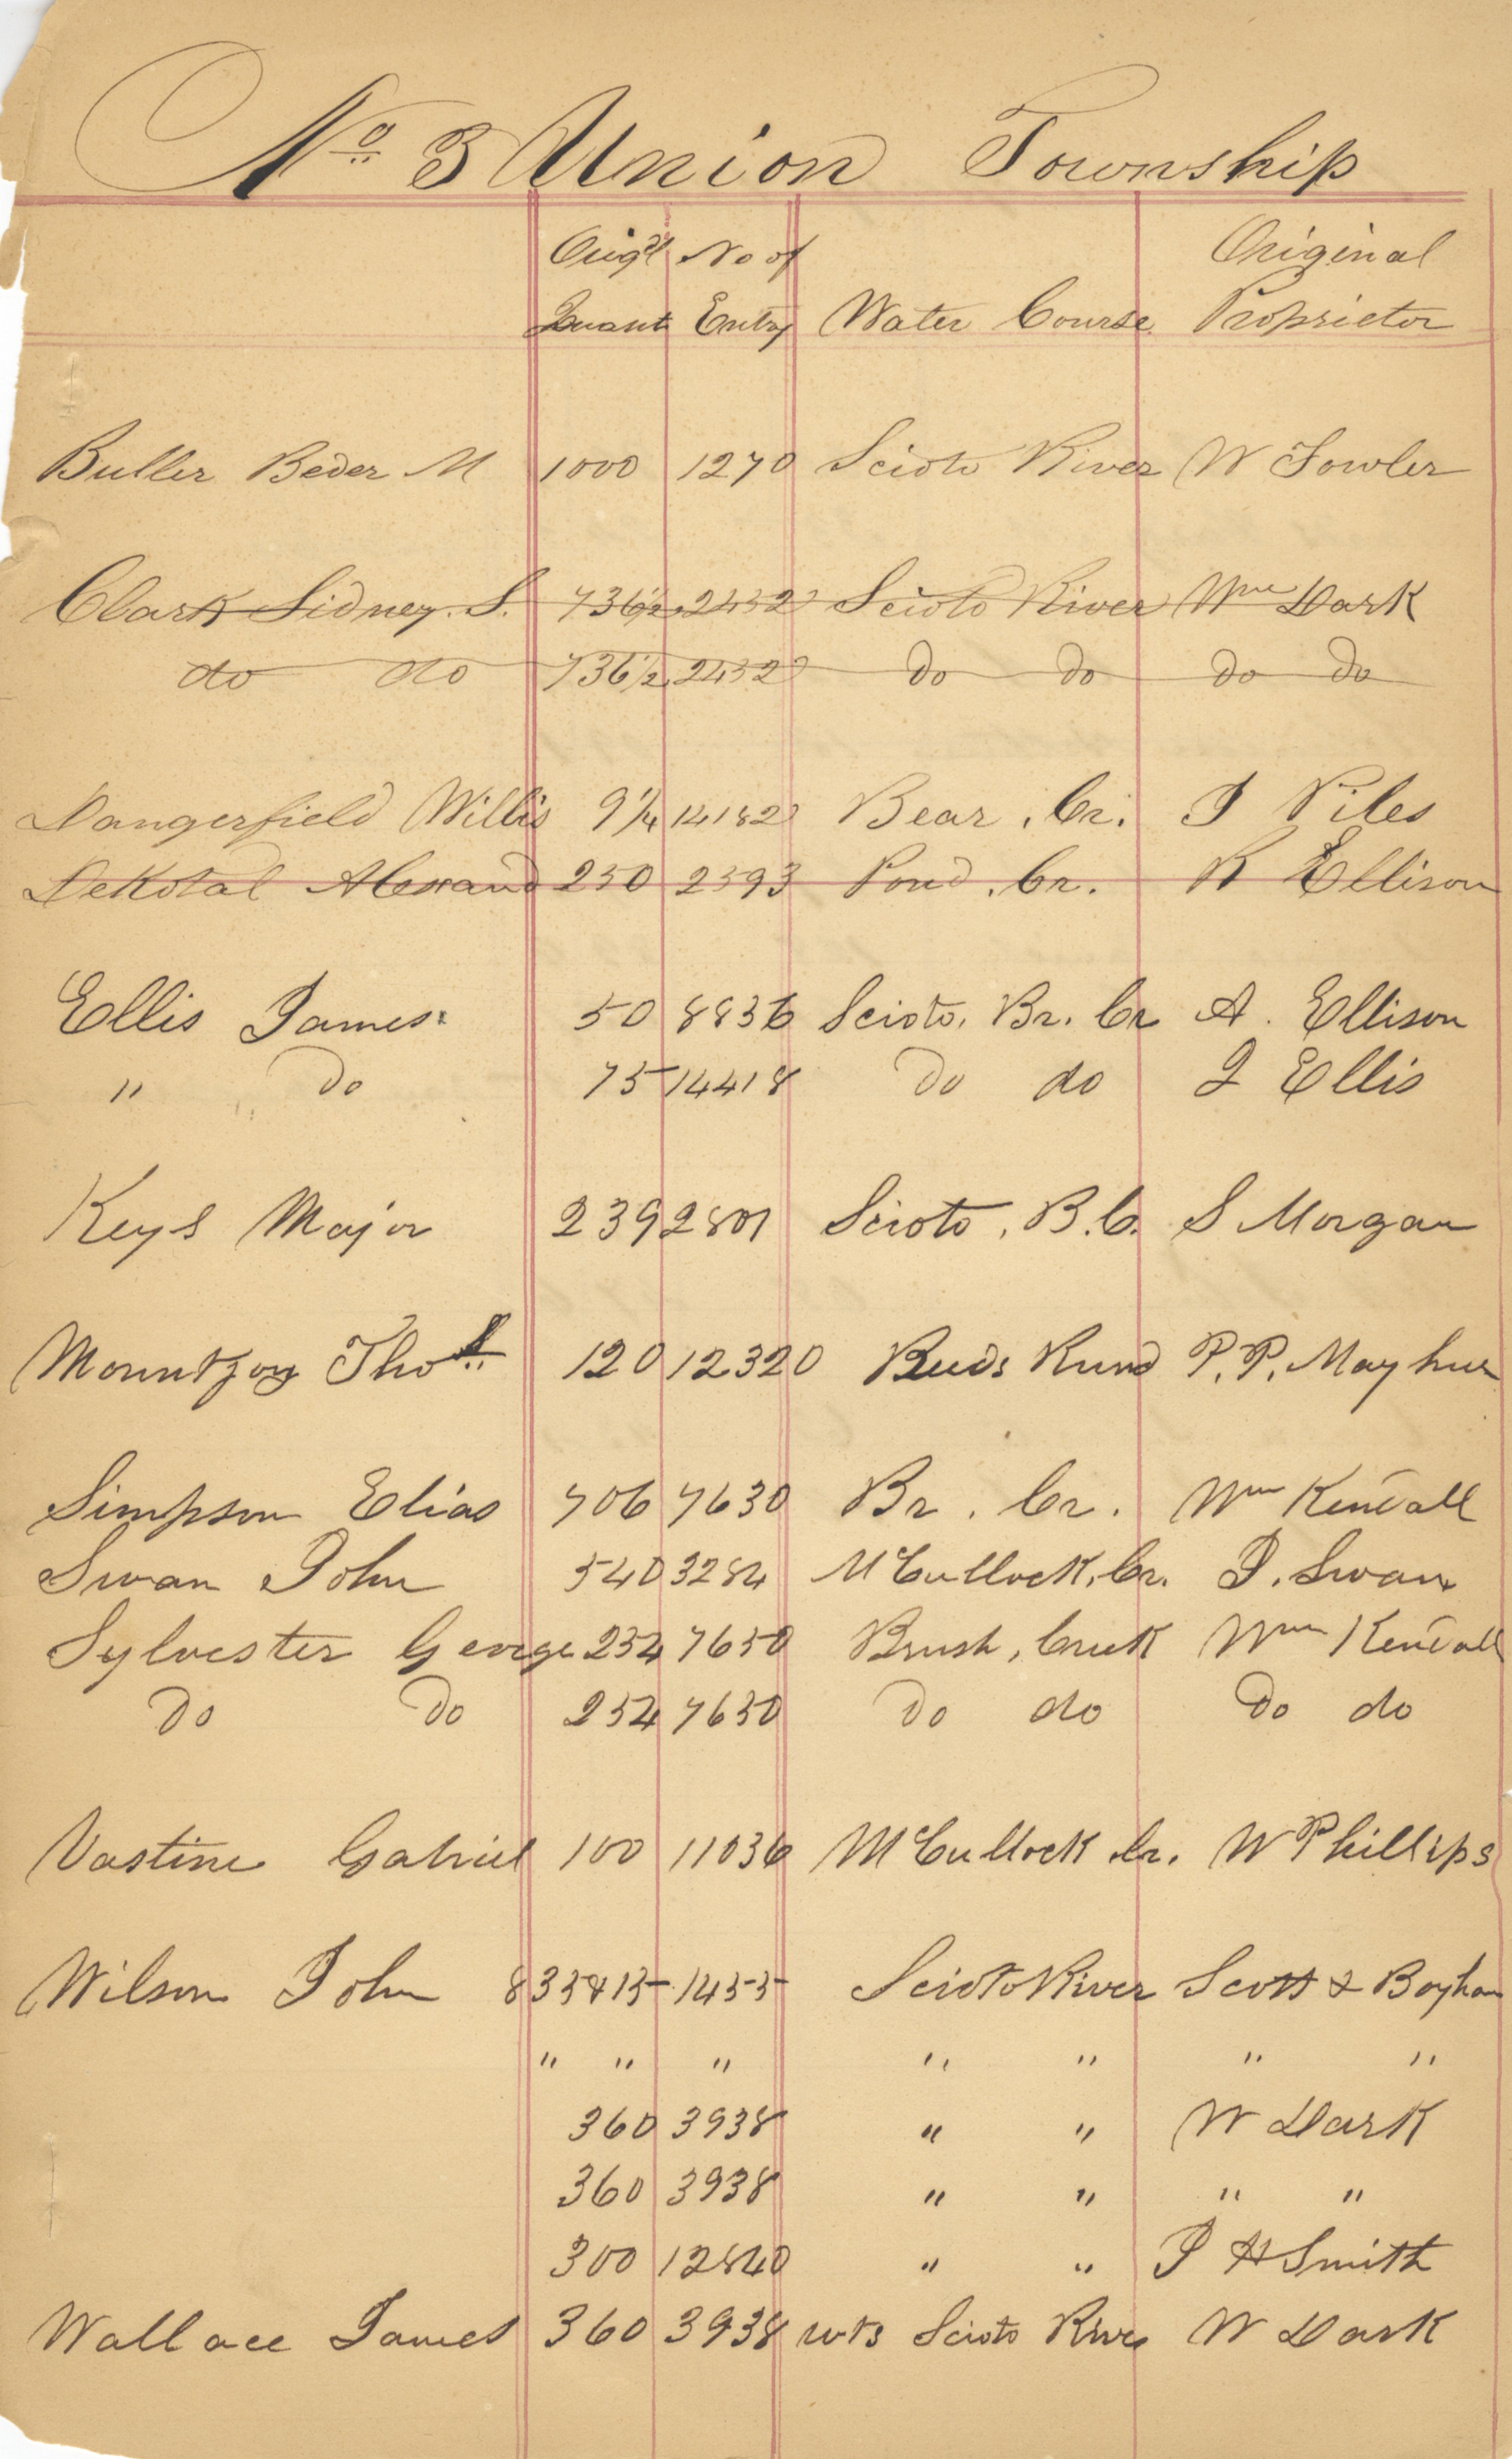 No 3 Union Township
Orig'l No of Original
Quant Entry Water Course Proprietor
Buller Beder M 1000 1270 Scioto River W Fowler
Clark Sidney. S. 736½ 2432 Scioto River Wm Dark
do do 736½ 2432 do do do do
Dangerfield Willis 9¼ 14182 Bear. Cr. J Piles
250 2393 Pond. Cr. R Ellison
Ellis James 50 8836 Scioto. Br. Cr A. Ellison
" Do 75 14418 Do do J Ellis
Keys Major 239 2801 Scioto. B.C. S Morgan
Mountjoy Thos 120 12320 Run P.P. Mayhue
Simpson Elias 706 7630 Br. Cr. Wm Kendall
Swan John 540 3284 McCullock. Cr. J. Swan
Sylvester George 234 7630 Brush. Creek Wm Kendall
Do Do 234 7630 Do do Do do
Vastine Gabriel 100 11036 McCullock Cr. W Phillips
Wilson John 833 1455 Scioto River Scott &
" " " " " " "
360 3938 " " W Dark
360 3938 " " " "
300 12840 " " J H Smith
Wallace James 360 3938 wts Scioto River W Dark